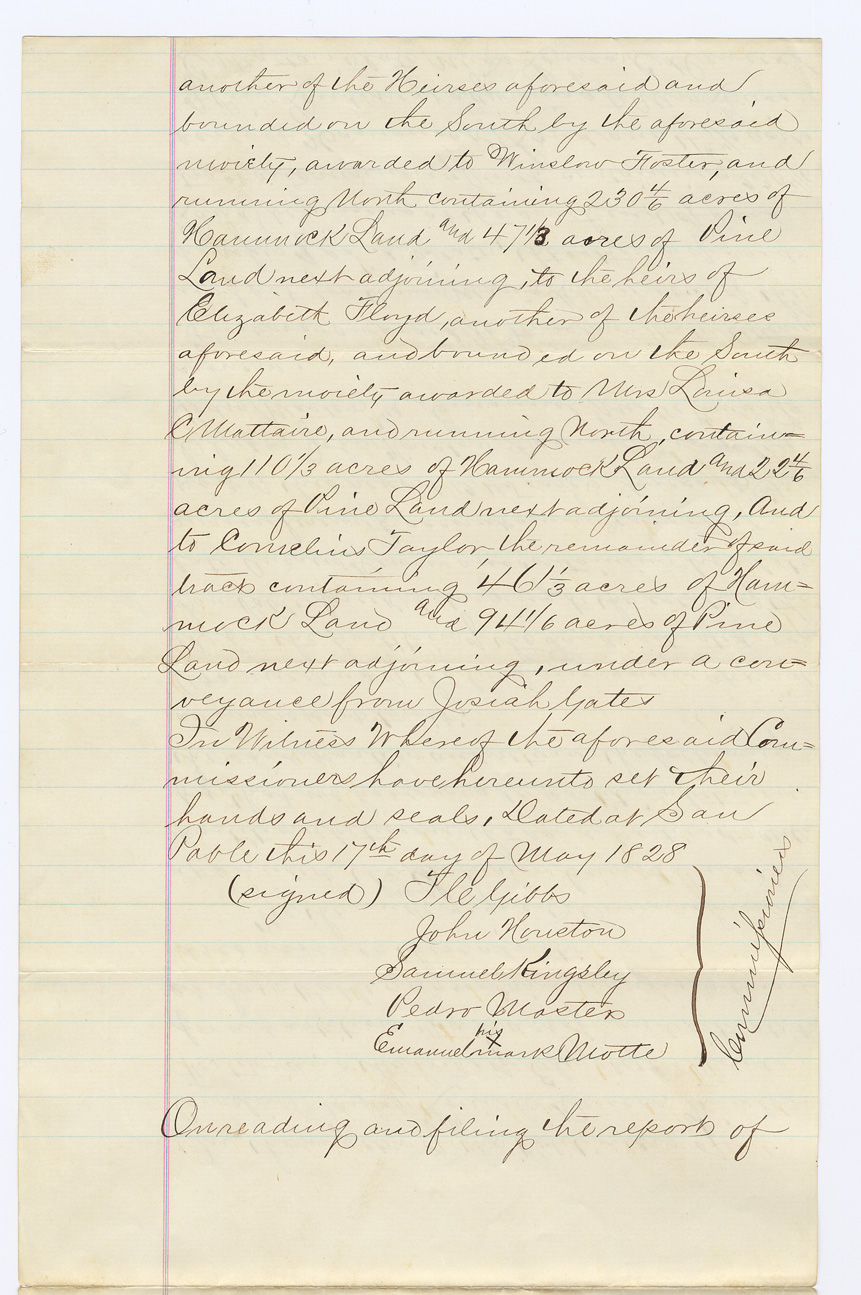 another of the Heirses aforesaid and
bounded on the South by the aforesaid
moiety, awarded to Winslow Foster, and
running North containing 230 4/6 acres of
Hammock Land and 47 1/3 acres of Pine
Land next adjoining, to the heirs of
Elizabeth Floyd, another of the heirses
aforesaid, and bounded on the South
by the moiety awarded to Mrs Louisa
C Mattaire, and running North, contain=
ing 110 1/3 acres of Hammock Land and 22 4/6
acres of Pine Land next adjoining, And
to Cornelius Taylor, the remainder of said
tract containing 461 1/3 acres of Ham=
mock Land and 94 1/6 acres of Pine
Land next adjoining, under a con=
veyance from Josiah Gates
In Witness Whereof the aforesaid Com=
missioners have hereunto set their
hands and seals, Dated at San
Pablo this 17th day of May 1828
(signed) Gibbs
John Houston
Samuel Kingsley
Pedro Masters
Emanuel his X mark Motte
Commissioners
On reading and filing the report of